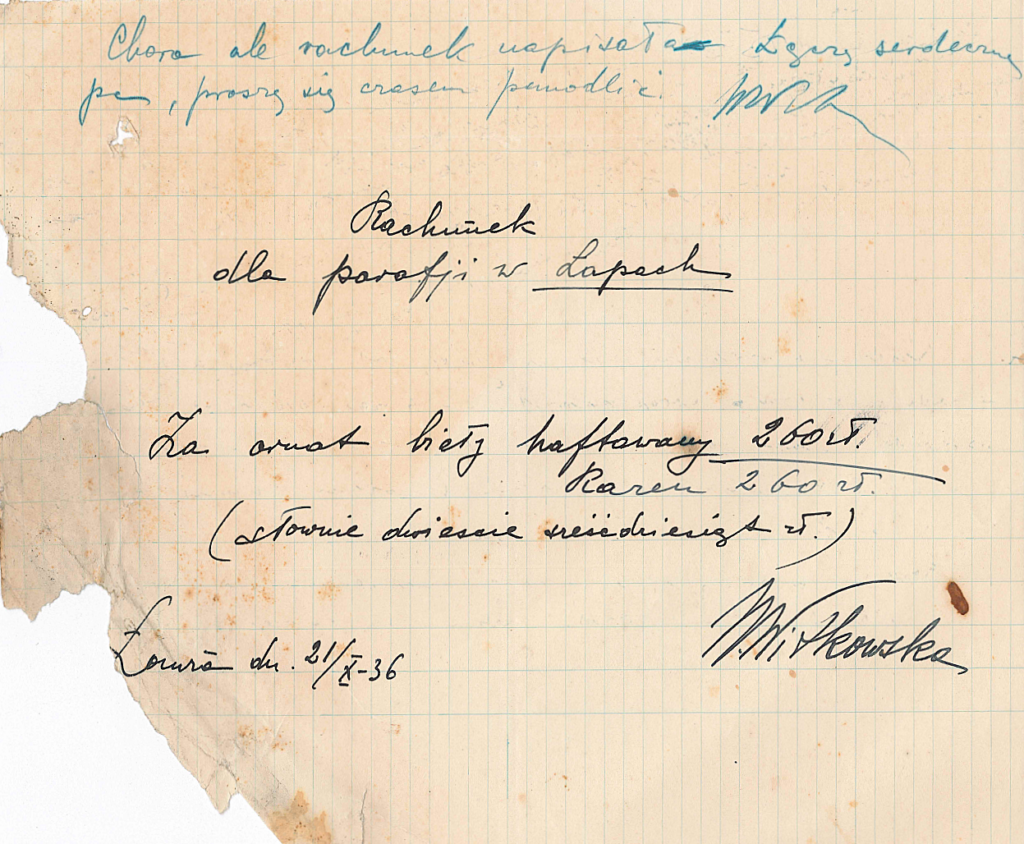 Chora ale rachunek napisała Łączę serdeczne
, proszę się czasem pomodlić.
Rachunek
dla parafji w Łapach
Za ornat biały haftowany 260 zł.
Razem 260 zł.
(słownie dwieście sześćdziesiąt zł.)
Łomża dn. 21/X-36
Witkowska